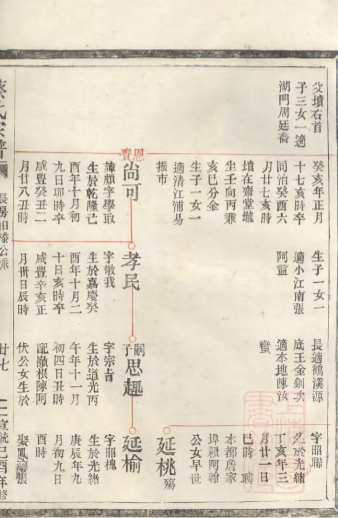 父墳石首
子三女一適
湖門周廷喬
癸亥年正月
十七亥時卒
同治癸酉六
月廿七亥時
墳在齋堂壠
坐壬向丙兼
亥巳分金
生子一女一
適清江浦易
振市
生子一女一
適小江南張
阿藍
長適鵝溪源
底王金釧次
適本地陳汝
蠻
字韶聯
生於光緒
丁亥年三
月廿一日
巳時聘
本都詹家
埠賴阿翰
公女早世
恩賚
尚可
諱頫字學取
生於乾隆己
酉年十月初
九日卯時卒
咸豐癸丑二
月廿八丑時
孝民
字敬我
生於嘉慶癸
酉年十月二
十日亥時卒
咸豐辛亥正
月卅日辰時
嗣子
思趣
字宗旨
生於道光丙
午年十一月
初四日丑時
龍瀨根陳阿
伏公女生於
延榆
字韶槐
生於光緒
庚辰年九
月初九日
酉時
娶鳳
張
延桃
殤
長房伯榛公派
廿七
宣統己酉年修